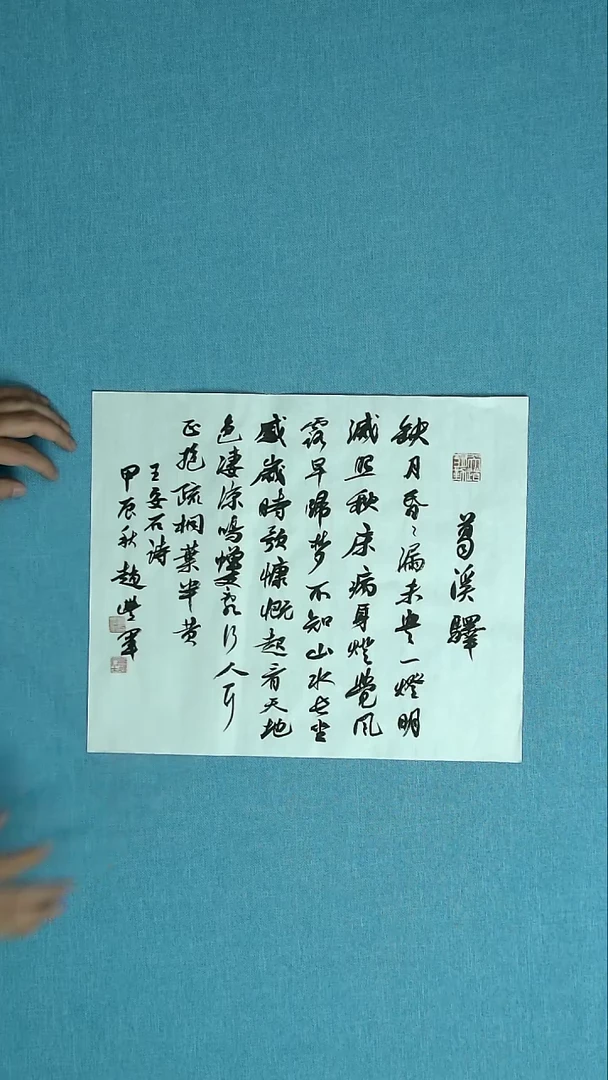 葛溪驛
缺月昏〻漏未央一燈明
滅照秋床病身覺風
露早歸夢不知山水长坐
感歲時歌慷慨起看天地
色凄凉鳴更亂行人耳
正抱疏桐葉半黄
王安石诗
甲辰秋趙豐軍